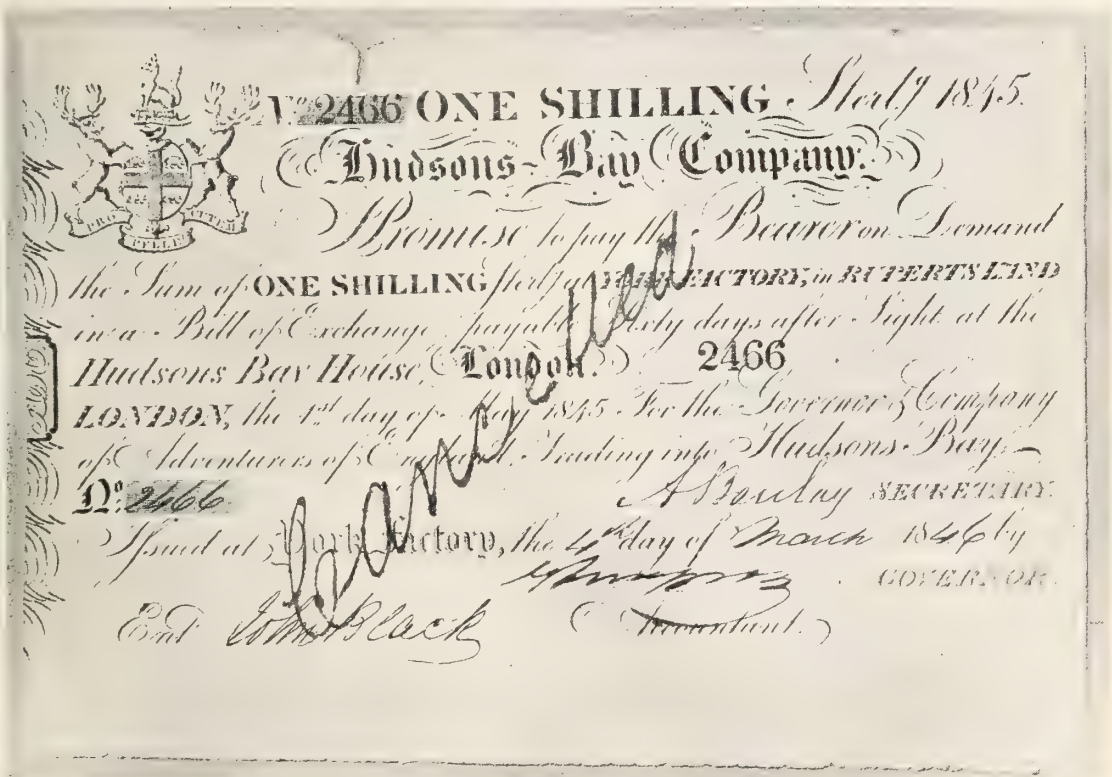 No. 2466 ONE SHILLING Sterl.g 1845.
Hudsons-Bay Company.
PRO PELLE CUTEM
I Promise to pay the Bearer on Demand
the Sum of ONE SHILLING Sterl.g at YORK FACTORY, in RUPERTS LAND
in a Bill of Exchange payable Sixty days after Sight at the
Hudsons Bay House, London. 2466
LONDON, the 1st day of May 1845 For the Governor & Company
of Adventurers of England, Trading into Hudsons-Bay
No. 2466 SECRETARY.
Issued at York Factory, the 4th day of March 1846 by
GOVERNOR.
Ent. John Black Accountant.
Cancelled